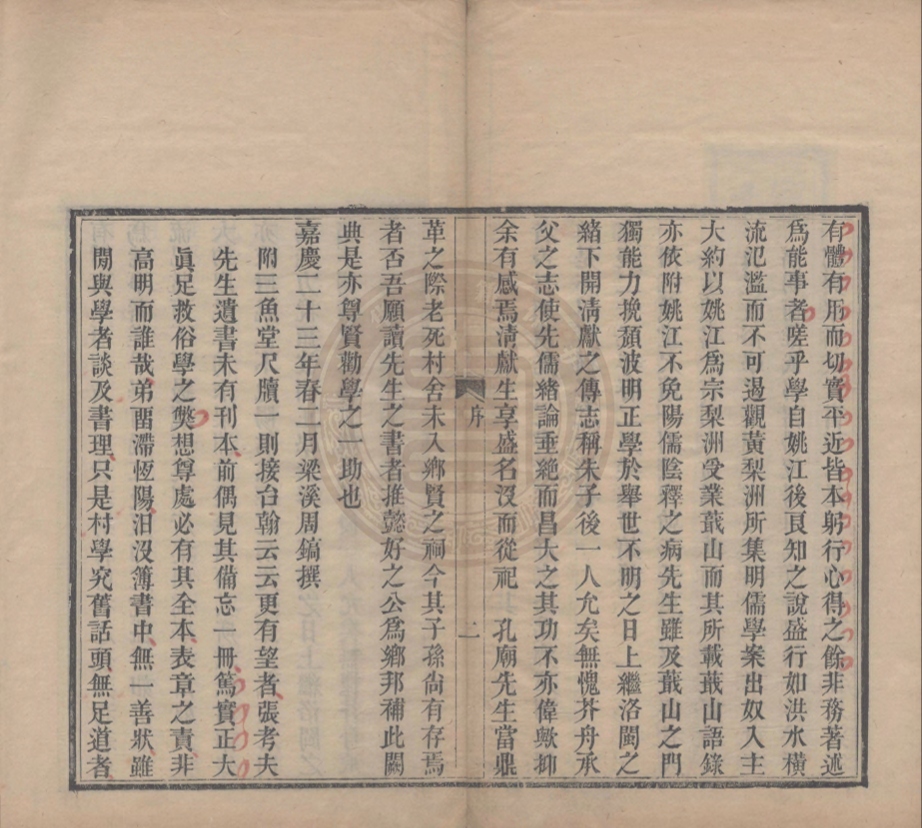 有體有用而切實平近皆本躬行心得之餘非務著述
爲能事者嗟乎學自姚江後良知之說盛行如洪水橫
流氾濫而不可遏觀黃梨洲所集明儒學案出奴入主
大約以姚江爲宗梨洲受業蕺山而其所載蕺山語錄
亦依附姚江不免陽儒陰釋之病先生雖及蕺山之門
獨能力挽頹波明正學於舉世不明之日上繼洛閩之
緒下開淸獻之傳志稱朱子後一人允矣無愧芥舟承
父之志使先儒緒論垂絶而昌大之其功不亦偉歟抑
余有感焉淸獻生享盛名沒而從祀 孔廟先生當鼎
序
二
革之際老死村舍未入鄉賢之祠今其子孫尙有存焉
者否吾願讀先生之書者推懿好之公爲鄉邦補此闕
典是亦尊賢勸學之一助也
嘉慶二十三年春二月梁溪周鎬撰
附三魚堂尺牘一則接台翰云云更有望者張考夫
先生遺書未有刊本前偶見其備忘一冊篤實正大
眞足救俗學之獘想尊處必有其全本表章之責非
高明而誰哉弟畱滯恆陽汨沒簿書中無一善狀雖
閒與學者談及書理只是村學究舊話頭無足道者